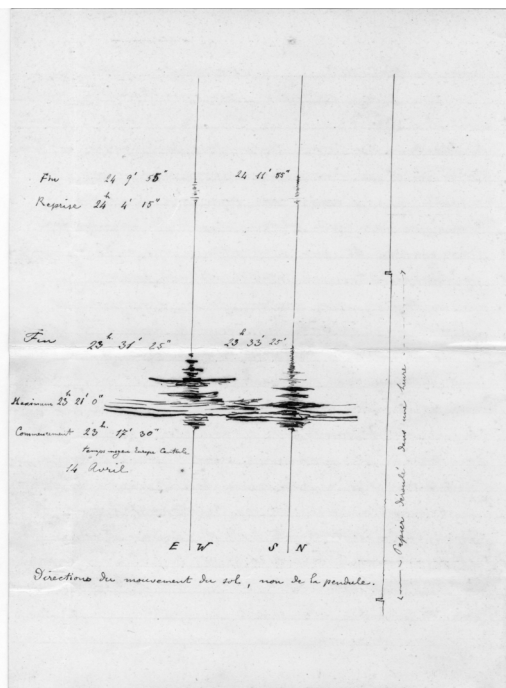 Fin 24 9' 55" 24 11' 55"
Reprise 24h 4' 15"
Fin 23h 31' 25" 23h 33' 25"
Maximum 23h 21' 0"
Commencement 23h 17' 30"
temps moyen Europe Centrale
14 Avril
E W S N
Directions du mouvement du sol, non de la pendule.
Papier déroulé dans une heure